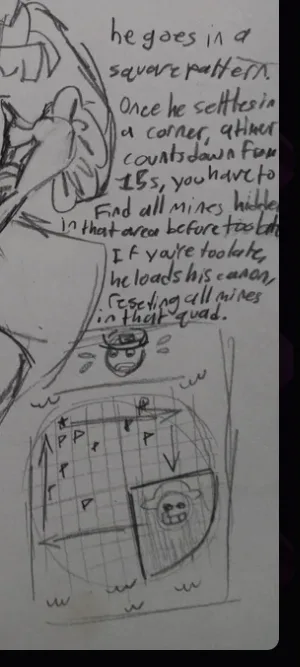 he goes in a
square pattern.
Once he settles in
a corner, a timer
counts down from
15s, you have to
Find all mines hidden
in that area before too late
If you're too late,
he loads his canon,
reseting all mines
in that quad.